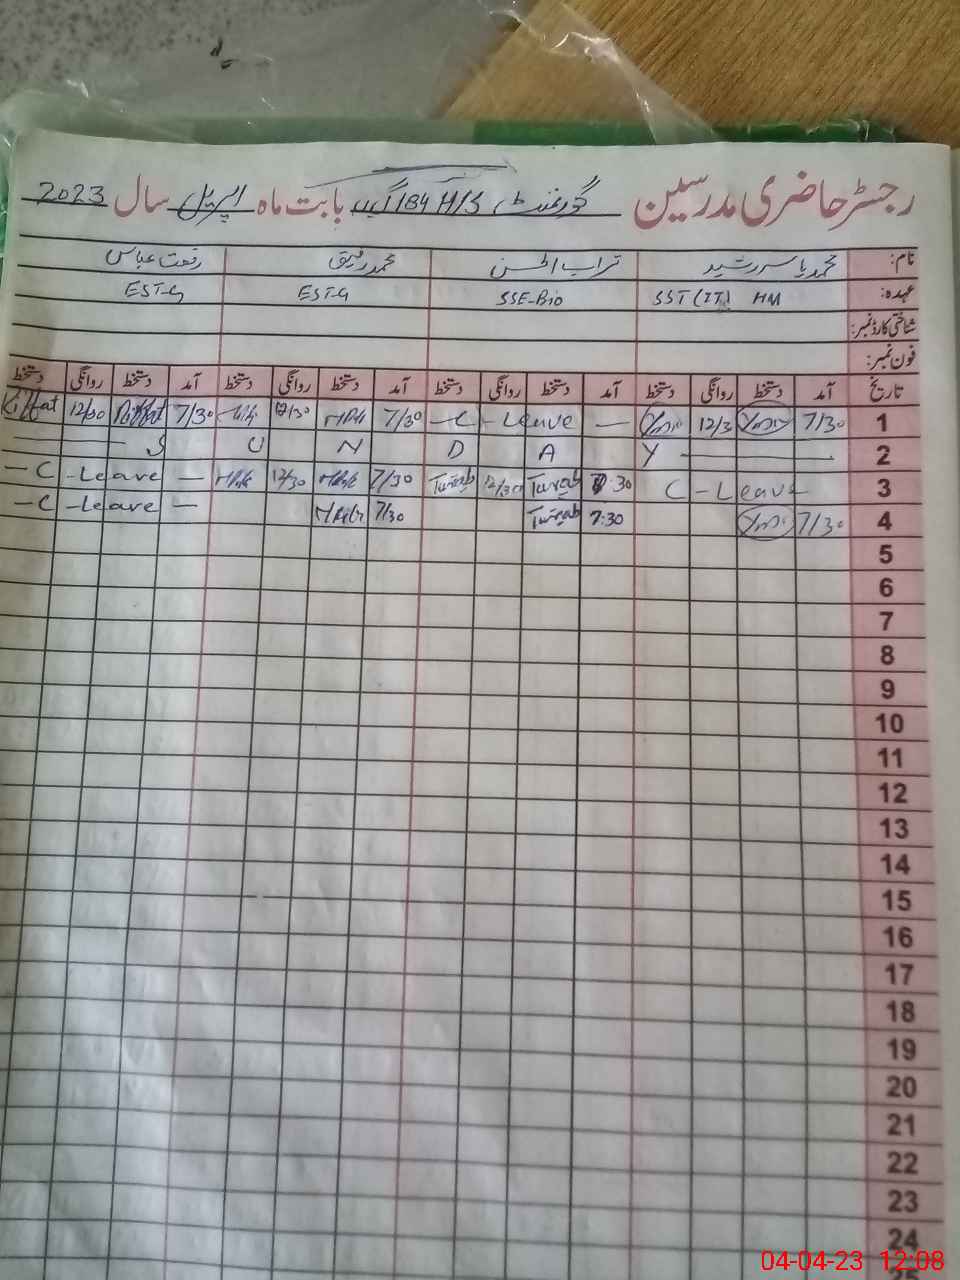 رجسٹر حاضری مدرسین گورنمنٹ H/S 184 بابت ماہ اپریل سال 2023
نام: محمد یاسر رشید تراب الحسن محمد رفیق رفعت عباس
عہدہ: SST (IT) HM SSE-Bio EST-G EST-G
شناختی کارڈ نمبر:
فون نمبر:
تاریخ آمد دستخط روانگی دستخط آمد دستخط روانگی دستخط آمد دستخط روانگی دستخط آمد دستخط روانگی دستخط
1 7/30 12/3 — C - Leave — 7/30 12/30 7/30 Riffat 12/30 Riffat
2 S U N D A Y
3 C - Leave 7:30 Turab 12/30 Turab 7/30 12/30 — C - Leave —
4 7/30 7:30 Turab 7/30 — C - Leave —
5
6
7
8
9
10
11
12
13
14
15
16
17
18
19
20
21
22
23
24
25
04-04-23 12:08